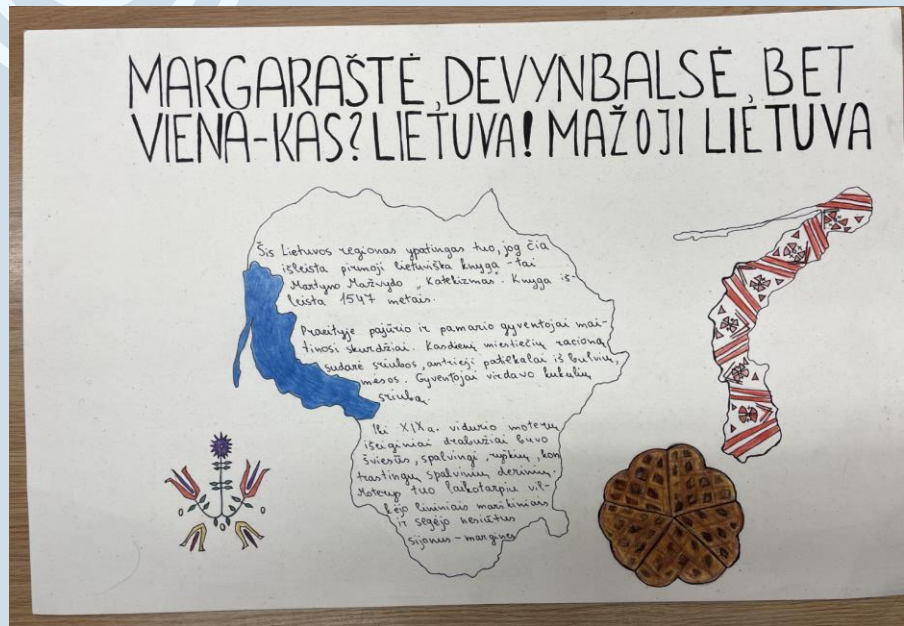 MARGARAŠTĖ, DEVYNBALSĖ, BET
VIENA-KAS? LIETUVA! MAŽOJI LIETUVA
Šis Lietuvos regionas ypatingas tuo, jog čia
išleista pirmoji lietuviška knyga - tai
Martyno Mažvydo „Katekizmas". Knyga iš-
leista 1547 metais.
Praeityje pajūrio ir pamario gyventojai mai-
tinosi skurdžiai. Kasdienį miestiečių racioną
sudarė sriubos, antrieji patiekalai iš bulvių,
mėsos. Gyventojai virdavo kukulių
sriubą.
Iki XIX a. vidurio moterų
išeiginiai drabužiai buvo
šviesūs, spalvingi, ryškių, kon
trastingų spalvinių derinių.
Moterys tuo laikotarpiu vil-
kėjo lininiais marškiniais
ir segėjo nesiūtus
sijonus - margines